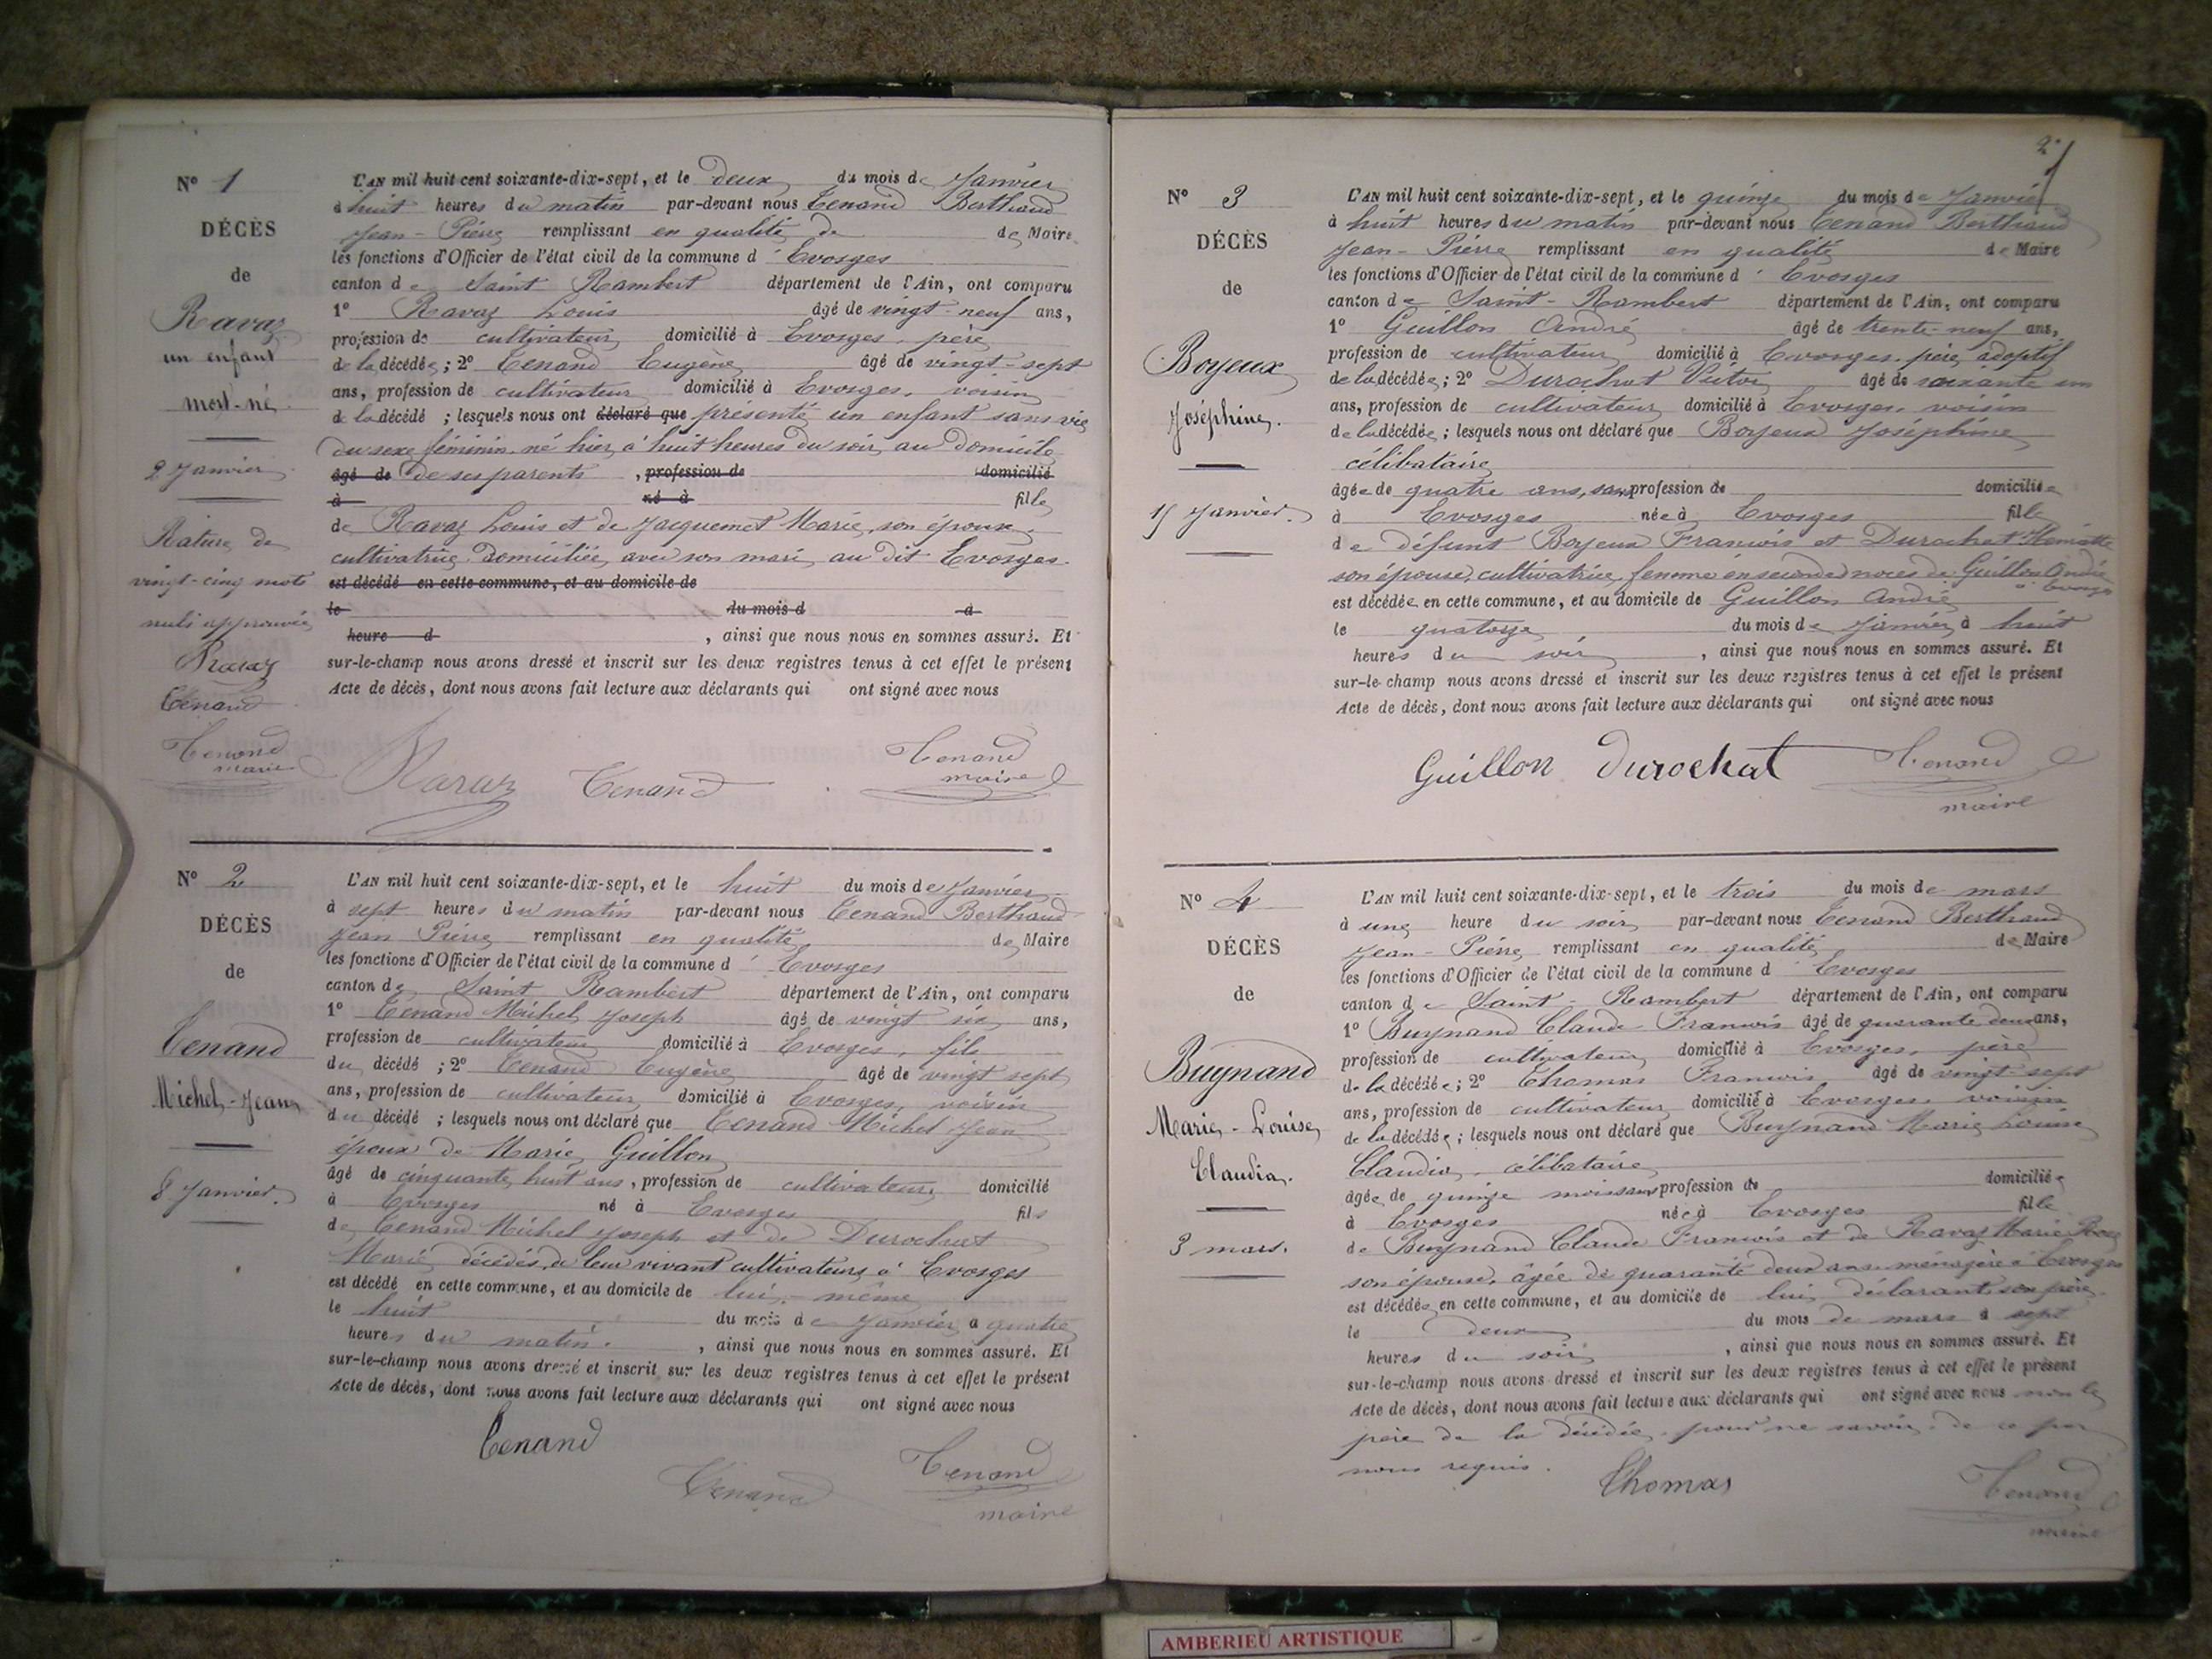 N° 1
DÉCÈS
de
Ravaz
un enfant
mort-né.
2 Janvier.
Rature de
vingt-cinq mots
nuls approuvée
Ravaz
Tenand
Tenand
maire
L'AN mil huit cent soixante-dix-sept, et le deux du mois de Janvier
à huit heures du matin par-devant nous Tenand Berthaud
Jean-Pierre remplissant en qualité de de Maire
les fonctions d'Officier de l'état civil de la commune d'Evosges
canton de Saint Rambert département de l'Ain, ont comparu
1° Ravaz Louis âgé de vingt-neuf ans,
profession de cultivateur domicilié à Evosges, père
de la décédée ; 2° Tenand Eugène âgé de vingt-sept
ans, profession de cultivateur domicilié à Evosges, voisin
de la décédé ; lesquels nous ont déclaré que présenté un enfant sans vie
du sexe féminin né hier à huit heures du soir, au domicile
âgé de de ses parents , profession de domicilié
à né à fille
de Ravaz Louis et de Jacquemet Marie, son épouse,
cultivatrice domiciliée avec son mari au dit Evosges.
est décédé en cette commune, et au domicile de
le du mois d à
heure d , ainsi que nous nous en sommes assuré. Et
sur-le-champ nous avons dressé et inscrit sur les deux registres tenus à cet effet le présent
Acte de décès, dont nous avons fait lecture aux déclarants qui ont signé avec nous
Ravaz Tenand Tenand
maire
N° 2
DÉCÈS
de
Tenand
Michel-Jean
8 Janvier.
L'AN mil huit cent soixante-dix-sept, et le huit du mois de Janvier
à sept heures du matin par-devant nous Tenand Berthaud
Jean Pierre remplissant en qualité de Maire
les fonctions d'Officier de l'état civil de la commune d'Evosges
canton de Saint Rambert département de l'Ain, ont comparu
1° Tenand Michel Joseph âgé de vingt six ans,
profession de cultivateur domicilié à Evosges, fils
du décédé ; 2° Tenand Eugène âgé de vingt sept
ans, profession de cultivateur domicilié à Evosges, voisin
du décédé ; lesquels nous ont déclaré que Tenand Michel Jean
époux de Marie Guillon
âgé de cinquante huit ans, profession de cultivateur domicilié
à Evosges né à Evosges fils
de Tenand Michel Joseph et de Durochat
Marie décédés, de leur vivant cultivateurs à Evosges
est décédé en cette commune, et au domicile de lui-même
le huit du mois de Janvier à quatre
heures du matin. , ainsi que nous nous en sommes assuré. Et
sur-le-champ nous avons dressé et inscrit sur les deux registres tenus à cet effet le présent
Acte de décès, dont nous avons fait lecture aux déclarants qui ont signé avec nous
Tenand
Tenand Tenand
maire
2
N° 3
DÉCÈS
de
Boyeux
Joséphine.
15 Janvier.
L'AN mil huit cent soixante-dix-sept, et le quinze du mois de Janvier
à huit heures du matin par-devant nous Tenand Berthaud
Jean-Pierre remplissant en qualité de Maire
les fonctions d'Officier de l'état civil de la commune d'Evosges
canton de Saint-Rambert département de l'Ain, ont comparu
1° Guillon André âgé de trente-neuf ans,
profession de cultivateur domicilié à Evosges, père adoptif
de la décédée ; 2° Durochat Victor âgé de soixante un
ans, profession de cultivateur domicilié à Evosges, voisin
de la décédée ; lesquels nous ont déclaré que Boyeux Joséphine
célibataire
âgée de quatre ans, sans profession de domiciliée
à Evosges née à Evosges fille
de défunt Boyeux François et Durochat
son épouse, cultivatrice, femme en secondes noces de Guillon André
à Evosges
est décédée en cette commune, et au domicile de Guillon André
le quatorze du mois de Janvier à huit
heures du soir , ainsi que nous nous en sommes assuré. Et
sur-le-champ nous avons dressé et inscrit sur les deux registres tenus à cet effet le présent
Acte de décès, dont nous avons fait lecture aux déclarants qui ont signé avec nous
Guillon Durochat Tenand
maire
N° 4
DÉCÈS
de
Buynand
Marie-Louise
Claudia.
3 mars.
L'AN mil huit cent soixante-dix-sept, et le trois du mois de mars
à une heure du soir par-devant nous Tenand Berthaud
Jean-Pierre remplissant en qualité de Maire
les fonctions d'Officier de l'état civil de la commune d'Evosges
canton de Saint-Rambert département de l'Ain, ont comparu
1° Buynand Claude François âgé de quarante deux ans,
profession de cultivateur domicilié à Evosges, père
de la décédée ; 2° Thomas François âgé de vingt-sept
ans, profession de cultivateur domicilié à Evosges, voisin
de la décédée ; lesquels nous ont déclaré que Buynand Marie Louise
Claudia, célibataire
âgée de quinze mois sans profession de domiciliée
à Evosges née à Evosges fille
de Buynand Claude François et de Ravaz Marie
son épouse, âgée de quarante deux ans ménagère à Evosges
est décédée en cette commune, et au domicile de lui déclarant son père.
le deux du mois de mars à sept
heures du soir , ainsi que nous nous en sommes assuré. Et
sur-le-champ nous avons dressé et inscrit sur les deux registres tenus à cet effet le présent
Acte de décès, dont nous avons fait lecture aux déclarants qui ont signé avec nous non le
père de la décédée pour ne savoir, de ce par
nous requis.
Thomas Tenand
maire
AMBERIEU ARTISTIQUE